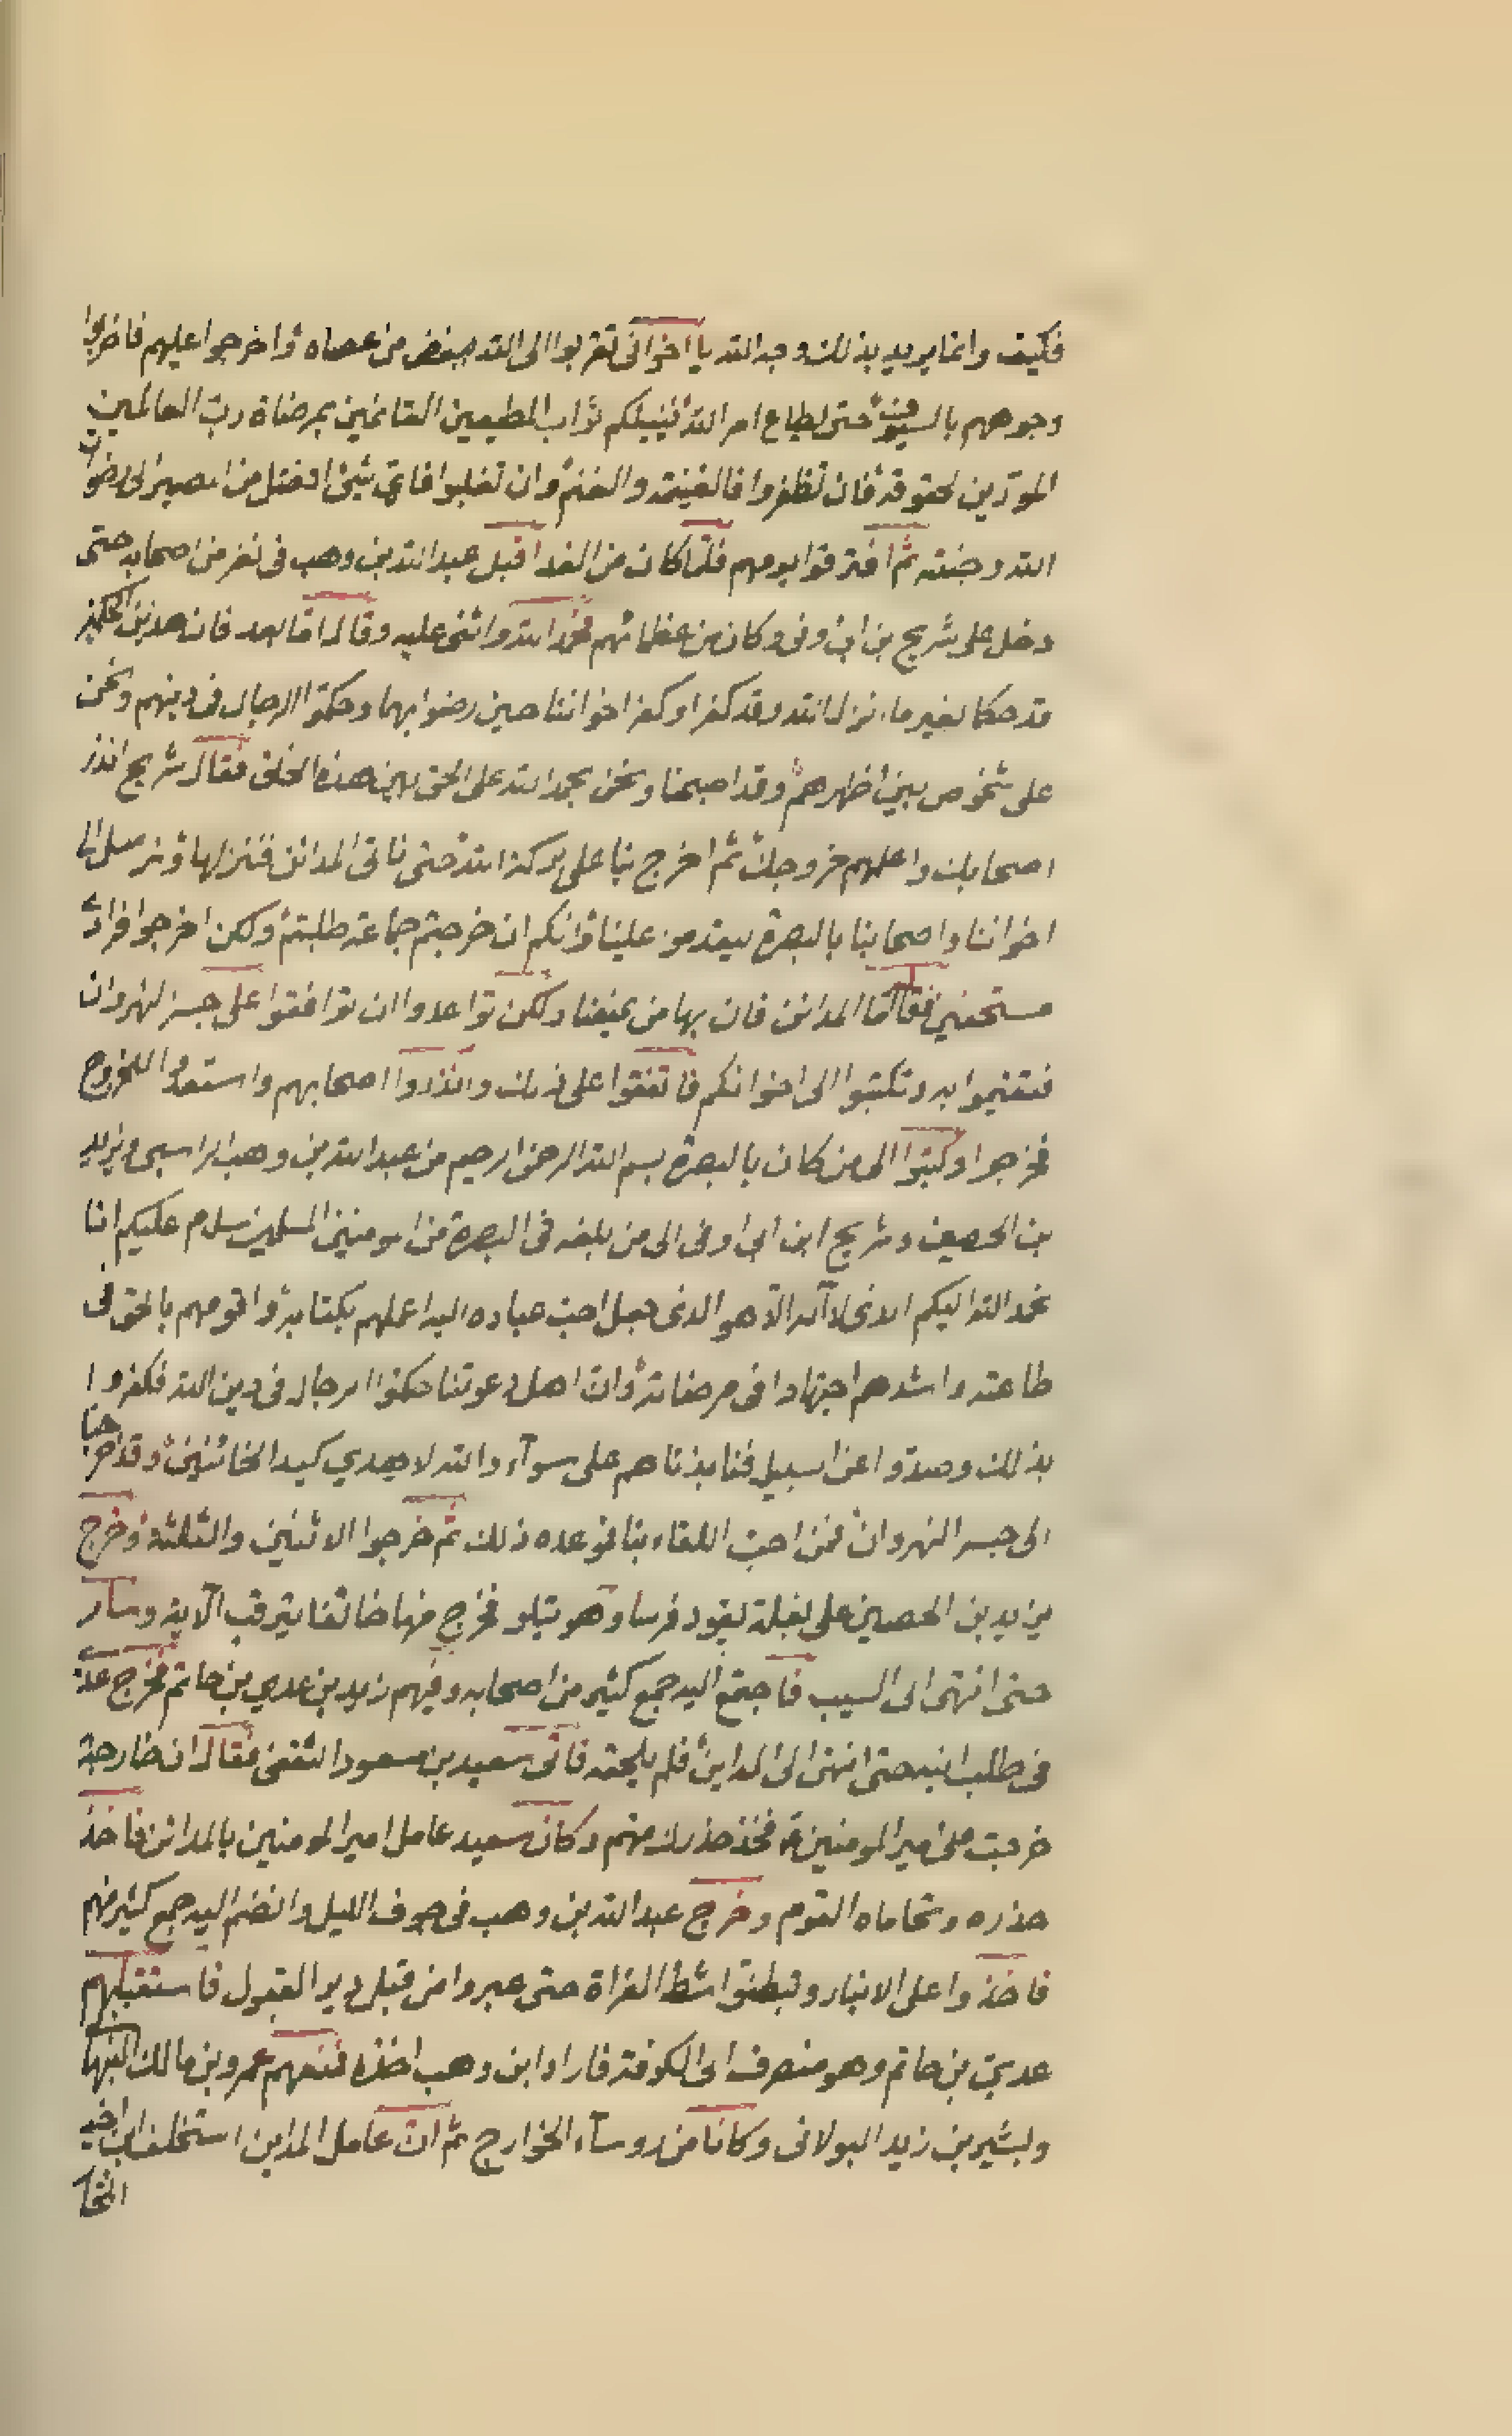 فكيف وانما يريد بذلك وجه الله يا اخوانى تقربوا الى الله ببغض من عصاه واخرجوا عليهم فاضربوا
وجوههم بالسيوف حتى يطاع امر الله يثيبكم ثواب المطيعين القائمين بمرضاة رب العالمين
المؤدين لحقوقه فان تظفروا فالغنيمة والغنم وان تغلبوا فاى شئ افضل من المصير الى رضوان
الله وجنته ثم افترقوا يومهم فلما كان من الغد اقبل عبد الله بن وهب فى نفر من اصحابه حتى
دخل على شريح بن ابى اوفى وكان من عظمائهم فحمد الله واثنى عليه وقال اما بعد فان هذين الحكمين
قد حكما بغير ما انزل الله وقد كفرا وكفر اخواننا حين رضوا بهما وحكموا الرجال فى دينهم ونحن
على شخوص بين اظهرهم وقد اصبحنا ونحن بحمد الله على الحق بين هذه الخلق فقال شريح انذر
اصحابك واعلمهم خروجك ثم اخرج بنا على بركة الله حتى ناتى المدائن فننزلها ونرسل الى
اخواننا واصحابنا بالبصرة ليقدمون علينا وانكم ان خرجتم جماعة طلبتم ولكن اخرجوا فرادى
مستخفين فقال اما المدائن فان بها من يمنعنا ولكن تواعدوا ان توافقوا على جسر النهروان
فتقيموا به وتكتبوا الى اخوانكم فاتفقوا على ذلك وانذروا اصحابهم واستعدوا للخروج
فخرجوا وكتبوا الى من كان بالبصرة بسم الله الرحمن الرحيم من عبد الله بن وهب الراسبى ويزيد
بن الحصين وشريح ابن ابى اوفى الى من بلغه فى البصرة من المومنين المسلمين سلام عليكم انا
نحمد الله اليكم الذى لا آله الا هو الذى جعل احب عباده اليه اعملهم بكتابه واقومهم بالحق فى
طاعته واشدهم اجتهادا فى مرضاته وان اهل دعوتنا حكموا الرجال فى دين الله فكفروا
بذلك وصدوا عن السبيل فنابذناهم على سوآء والله لا يهدي كيد الخائنين وقد خرجنا
الى جسر النهروان فمن احب اللقاء بنا فموعده ذلك ثم خرجوا الاثنين والثلثه وخرج
يزيد بن الحصين على بغلة يقود فرسا وهو يتلو فخرج منها خائفا يترقب الآية وسار
حتى انتهى الى السيب فاجتمع اليه جمع كثير من اصحابه وفيهم زيد بن عدي بن حاتم فخرج عدى
فى طلب ابنه حتى انتهى الى المداين فلم يلحقه فاتى سعيد بن مسعود الثقفى فقال ان خارجة
خرجت على امير المومنين فخذ حذرك منهم وكان سعيد عامل امير المومنين بالمدائن فاخذ
حذره وتحاماه القوم وخرج عبد الله بن وهب فى جوف الليل وانضم اليه جمع كثير منهم
فاخذوا على الانبار وتبطنوا شط الفراة حتى عبروا من قبل دير القبول فاستقبلهم
عدي بن حاتم وهو منصرف الى الكوفة فاراد ابن وهب اخذه فمنعهم عمرو بن مالك النبهانى
وبشير بن زيد البولانى وكانا من روسآء الخوارج ثم ان عامل المداين استخلف ابن اخيه
المختار